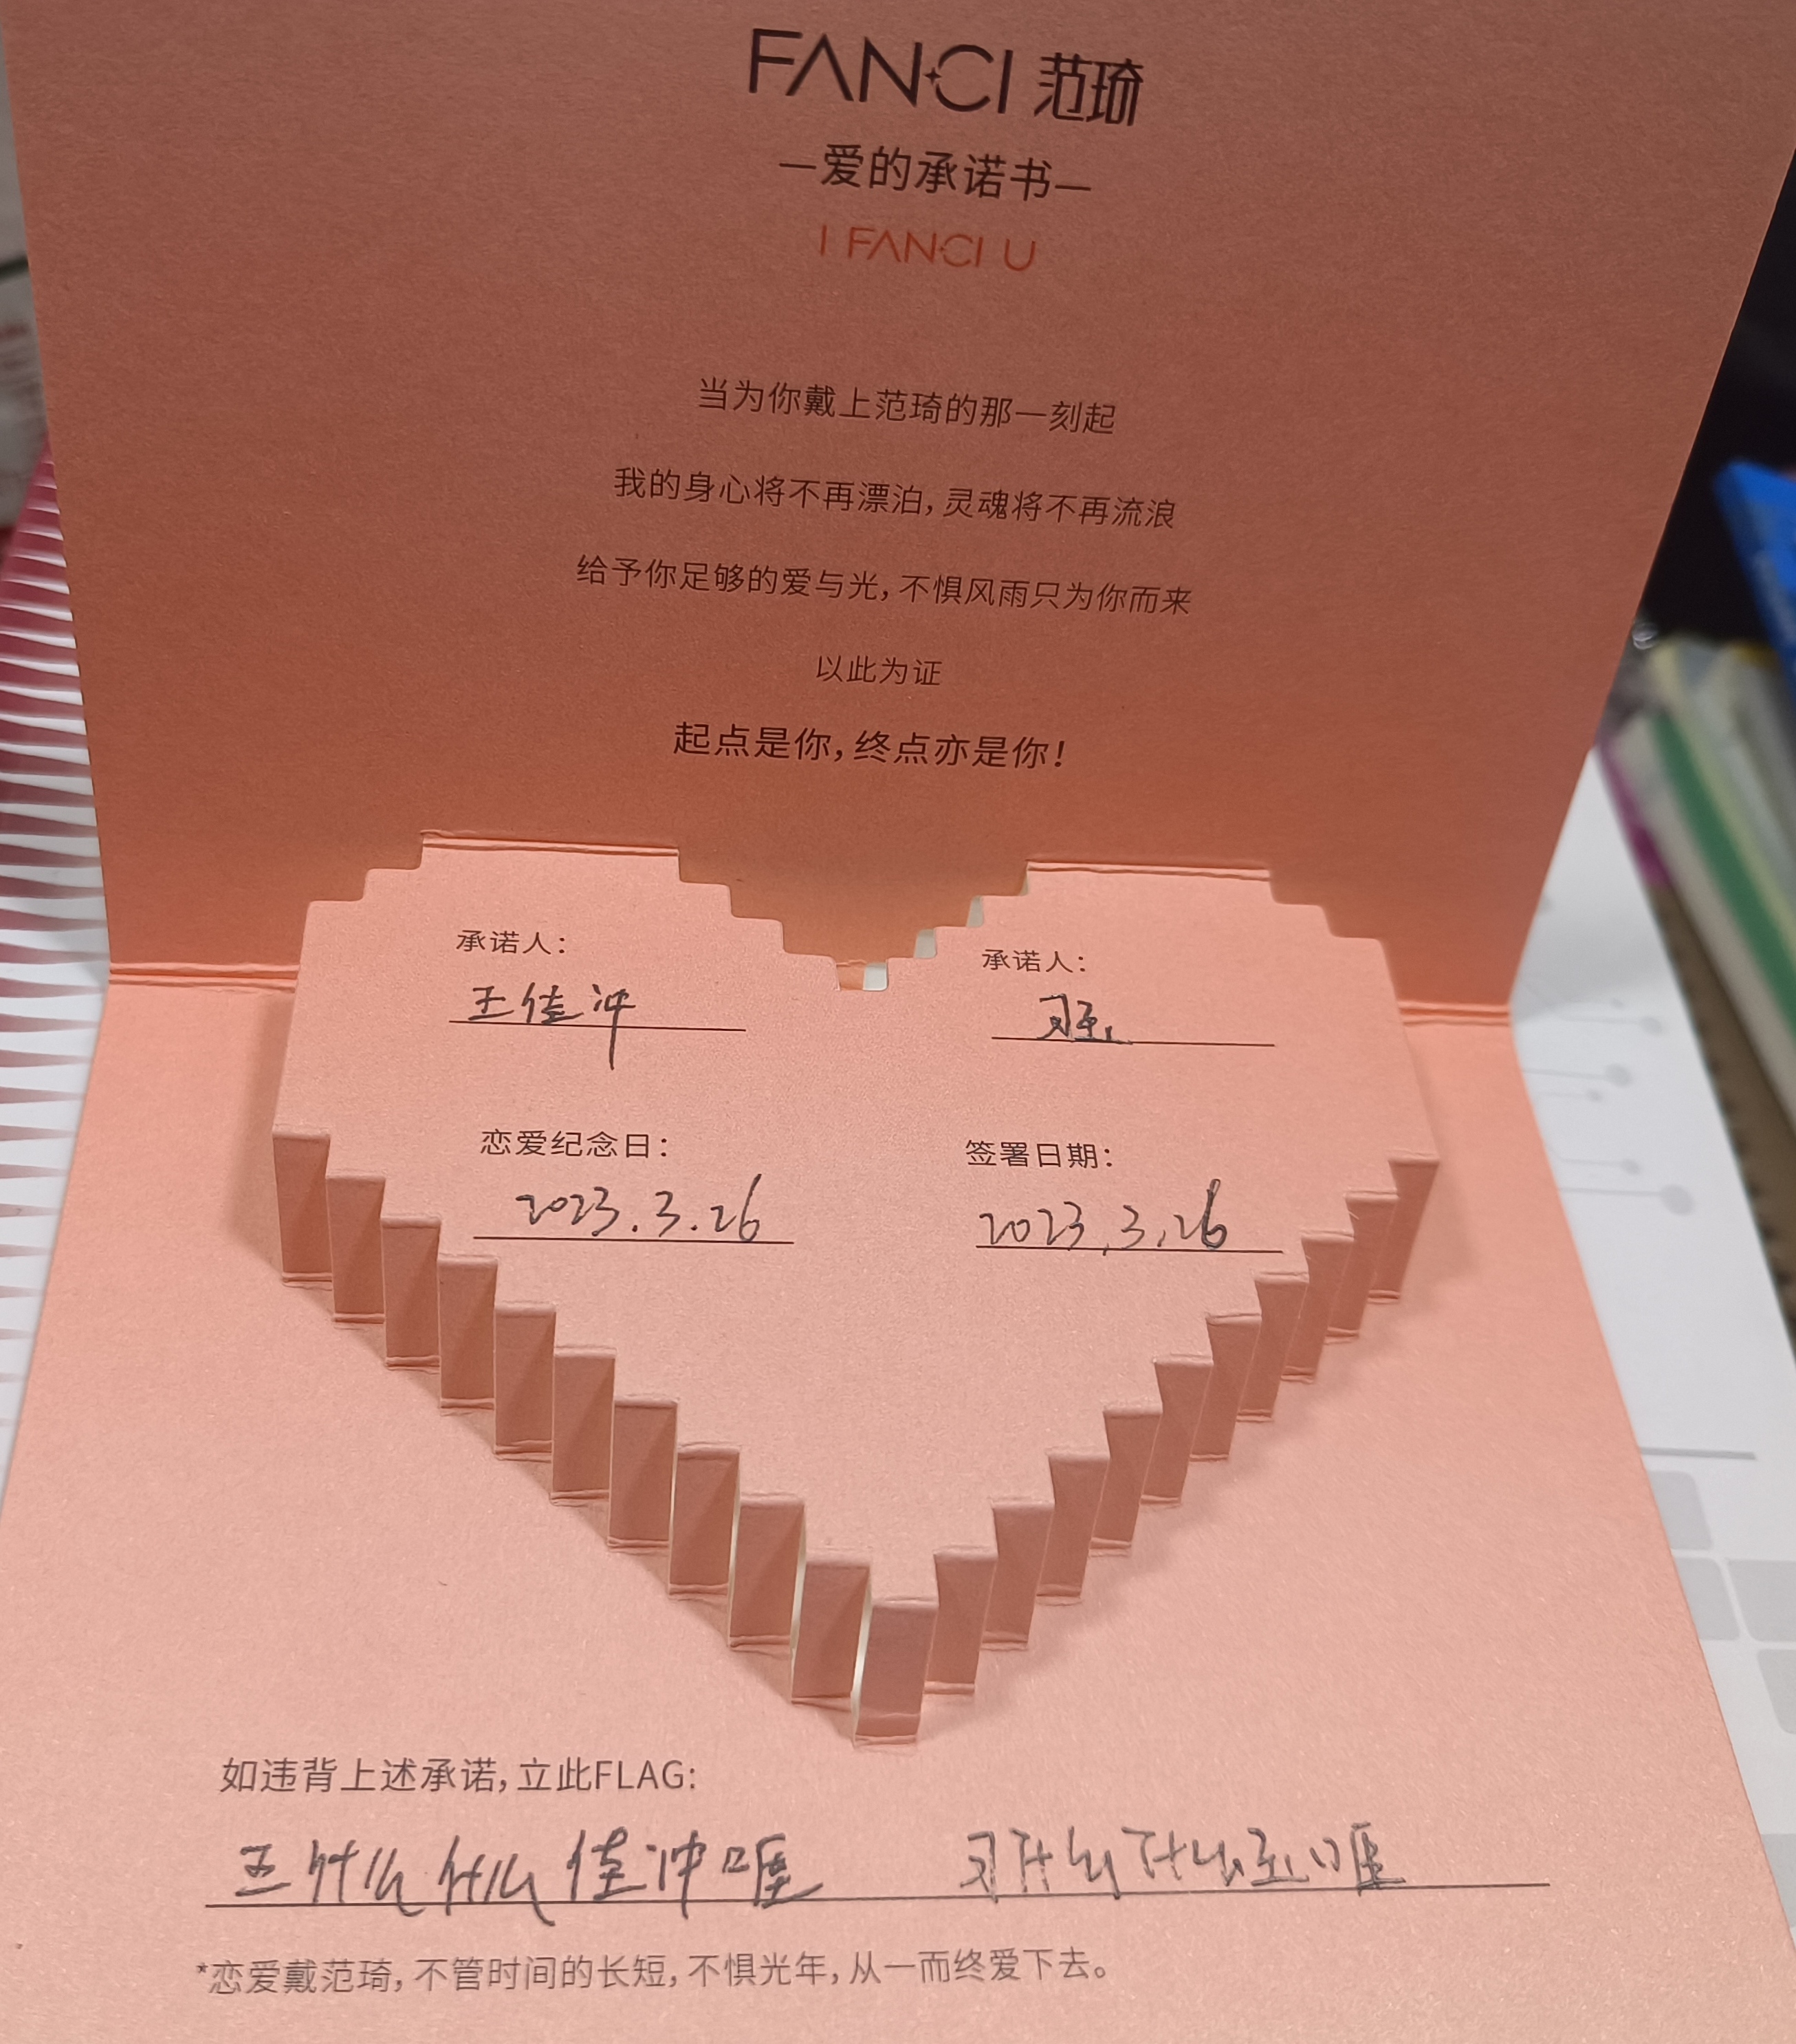 FANCI 范琦
—爱的承诺书—
I FANCI U
当为你戴上范琦的那一刻起
我的身心将不再漂泊，灵魂将不再流浪
给予你足够的爱与光，不惧风雨只为你而来
以此为证
起点是你，终点亦是你！
承诺人：
王佳冲
承诺人：
恋爱纪念日：
2023.3.26
签署日期：
2023.3.26
如违背上述承诺，立此FLAG:
王什么什么佳冲
*恋爱戴范琦，不管时间的长短，不惧光年，从一而终爱下去。